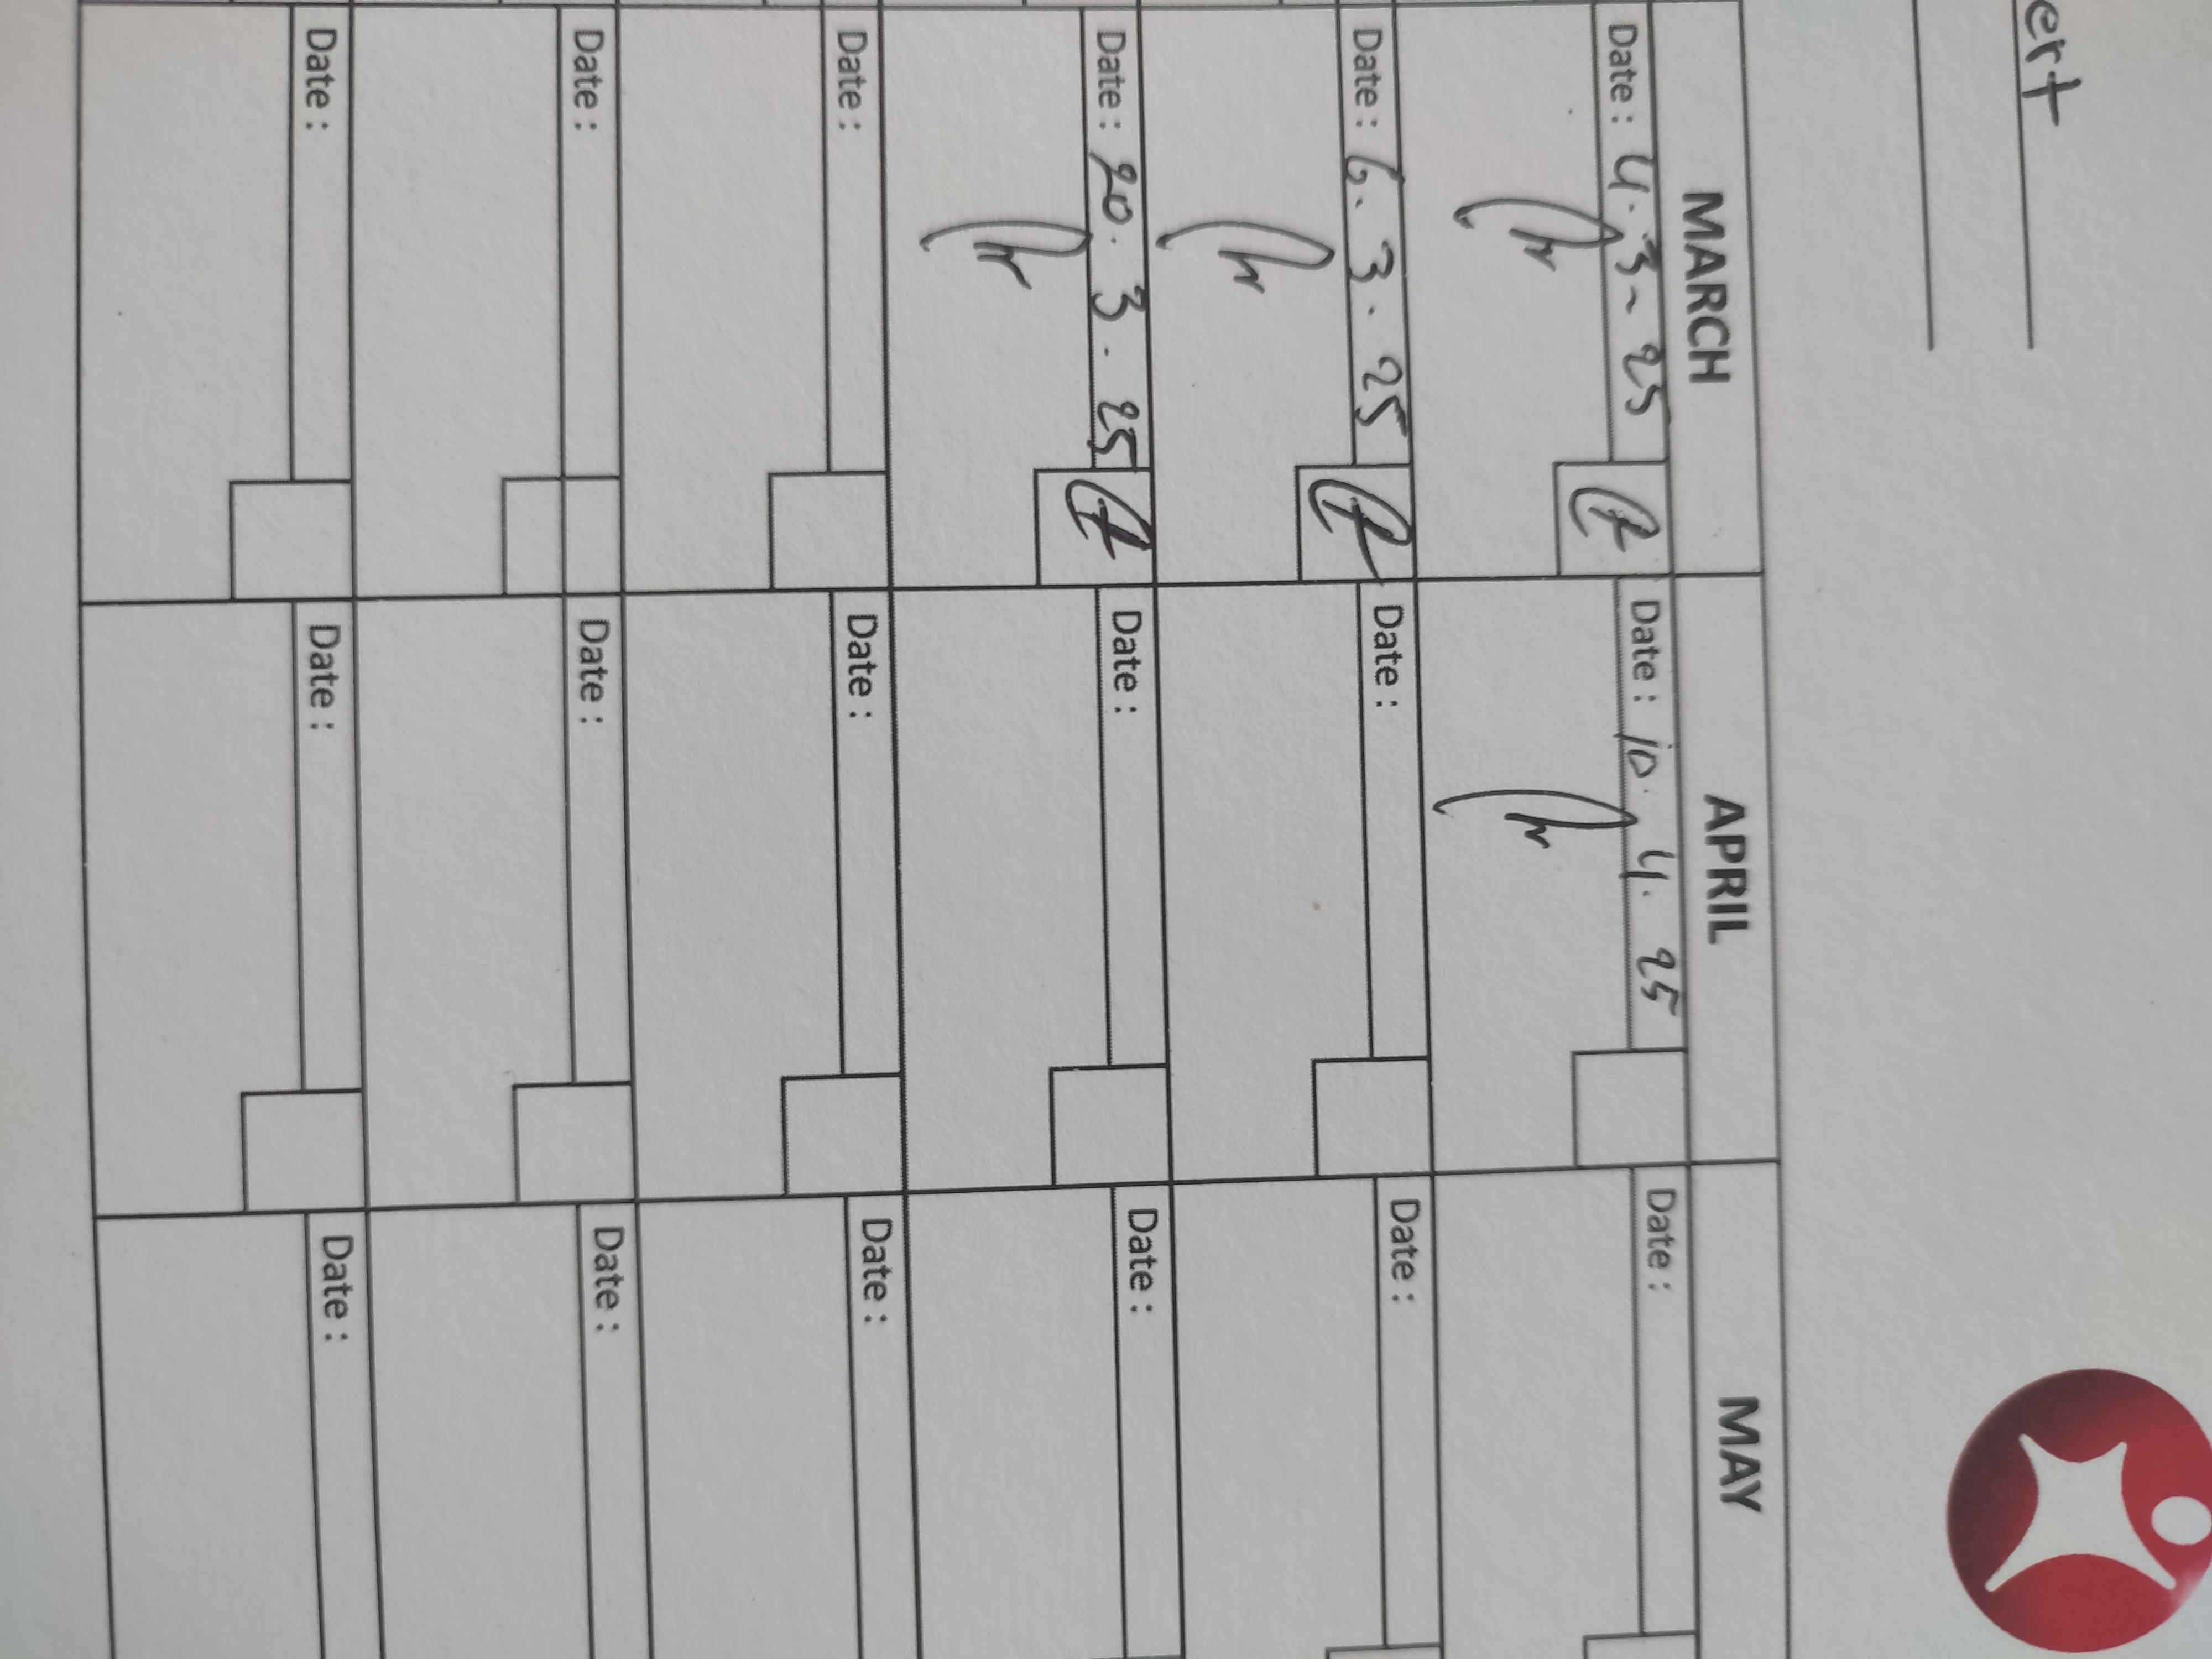 ert
MARCH APRIL MAY
Date : 4.3-25 Date : 10.4.25 Date :
Date : 6.3.25 Date : Date :
Date : 20.3.25 Date : Date :
Date : Date : Date :
Date : Date : Date :
Date : Date : Date :